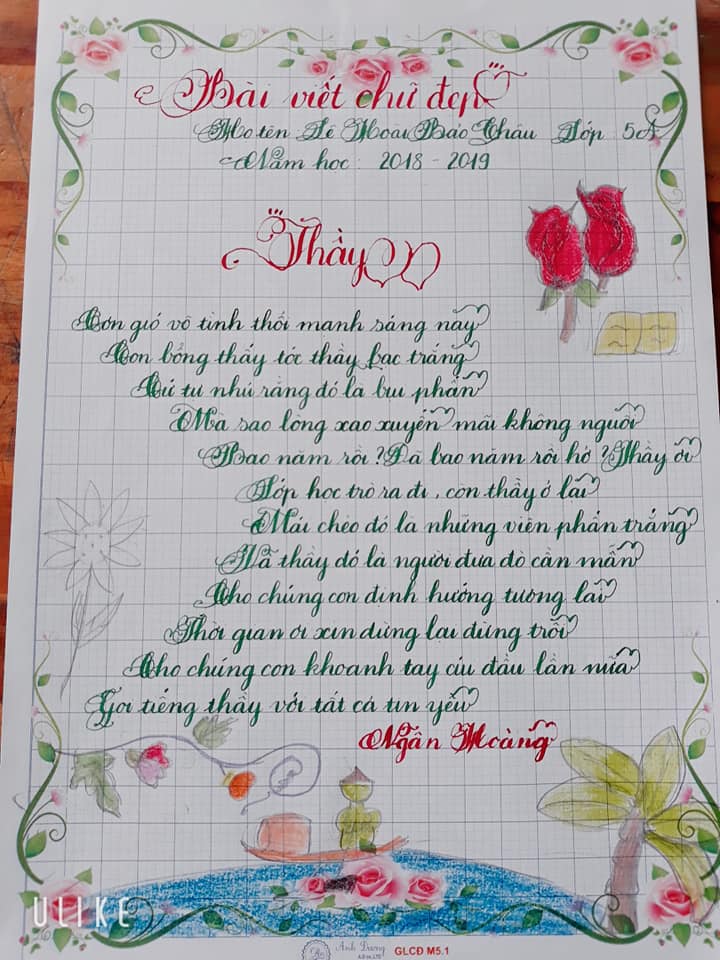 Bài viết chữ đẹp
Họ tên Lê Hoài Bảo Châu Lớp 5A
Năm học : 2018 - 2019
Thầy
Cơn gió vô tình thổi mạnh sáng nay
Con bổng thấy tóc thầy bạc trắng
Cứ tự nhủ rằng đó là bụi phấn
Mà sao lòng xao xuyến mãi không nguôi
Bao năm rồi ? Đã bao năm rồi hở ? Thầy ơi
Lớp học trò ra đi , còn thầy ở lại
Mái chèo đó là những viên phấn trắng
Và thầy đó là người đưa đò cần mẫn
Cho chúng con định hướng tương lai
Thời gian ơi xin dừng lại đừng trôi
Cho chúng con khoanh tay cúi đầu lần nữa
Gọi tiếng thầy với tất cả tin yêu
Ngân Hoàng
ULIKE
Anh Dương
GLCĐ M5.1